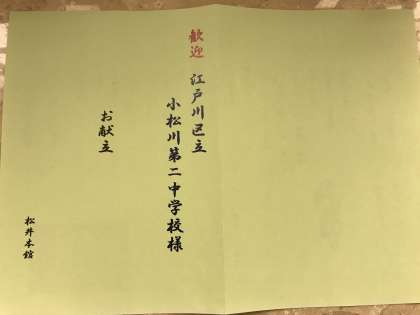 歓迎 江戸川区立
小松川第二中学校様
お献立
松井本館